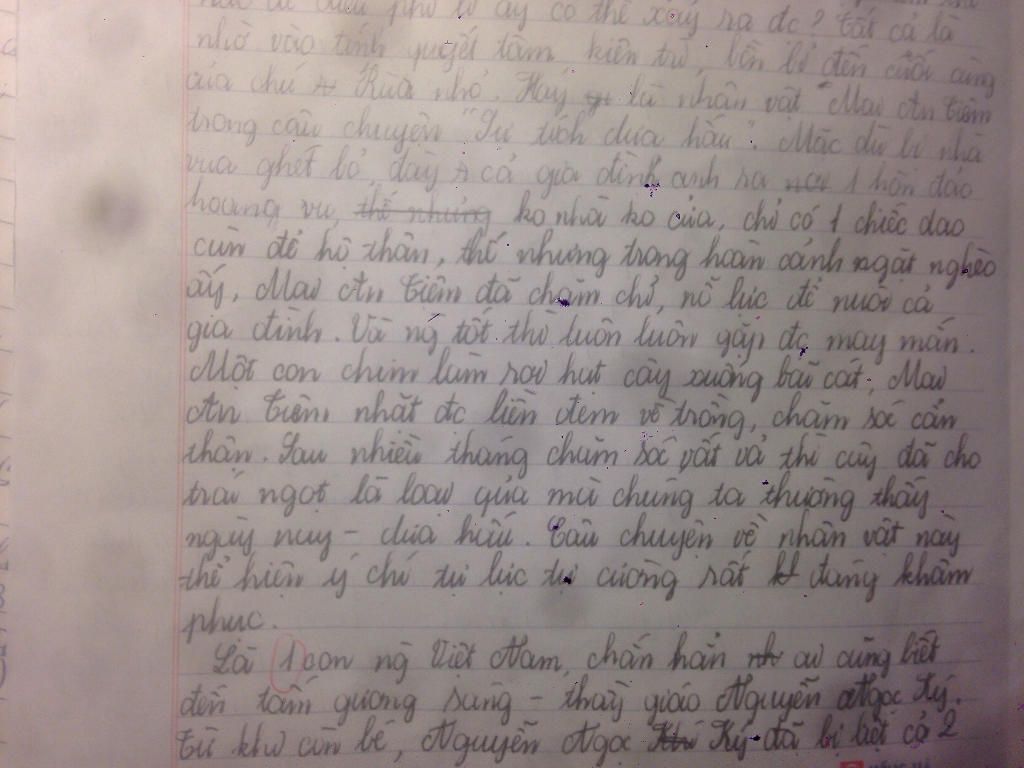 nào để điều phi lí ấy có thể xảy ra đc? Tất cả là
nhờ vào tính quyết tâm, kiên trì, bền bỉ đến cuối cùng
của chú Rùa nhỏ. Hay là nhân vật "Mai An Tiêm
trong câu chuyện "Sự tích dưa hấu". Mặc dù bị nhà
vua ghét bỏ, đày cả gia đình anh ra 1 hòn đảo
hoang vu, thế nhưng ko nhà ko cửa, chỉ có 1 chiếc dao
cùn để hộ thân, thế nhưng trong hoàn cảnh ngặt nghèo
ấy, Mai An Tiêm đã chăm chỉ, nỗ lực để nuôi cả
gia đình. Và ng tốt thì luôn luôn gặp đc may mắn.
Một con chim làm rơi hạt cây xuống bãi cát, Mai
An Tiêm nhặt đc liền đem về trồng, chăm sóc cẩn
thận. Sau nhiều tháng chăm sóc vất vả thì cây đã cho
trái ngọt là loại qủa mà chúng ta thường thấy
ngày nay - dưa hấu. Câu chuyện về nhân vật này
thể hiện ý chí tự lực tự cường rất đáng khâm
phục.
Là 1 con ng Việt Nam, chắn hẳn ai cũng biết
đến tấm gương sáng - thầy giáo Nguyễn Ngọc Ký.
Từ khi còn bé, Nguyễn Ngọc Ký đã bị liệt cả 2